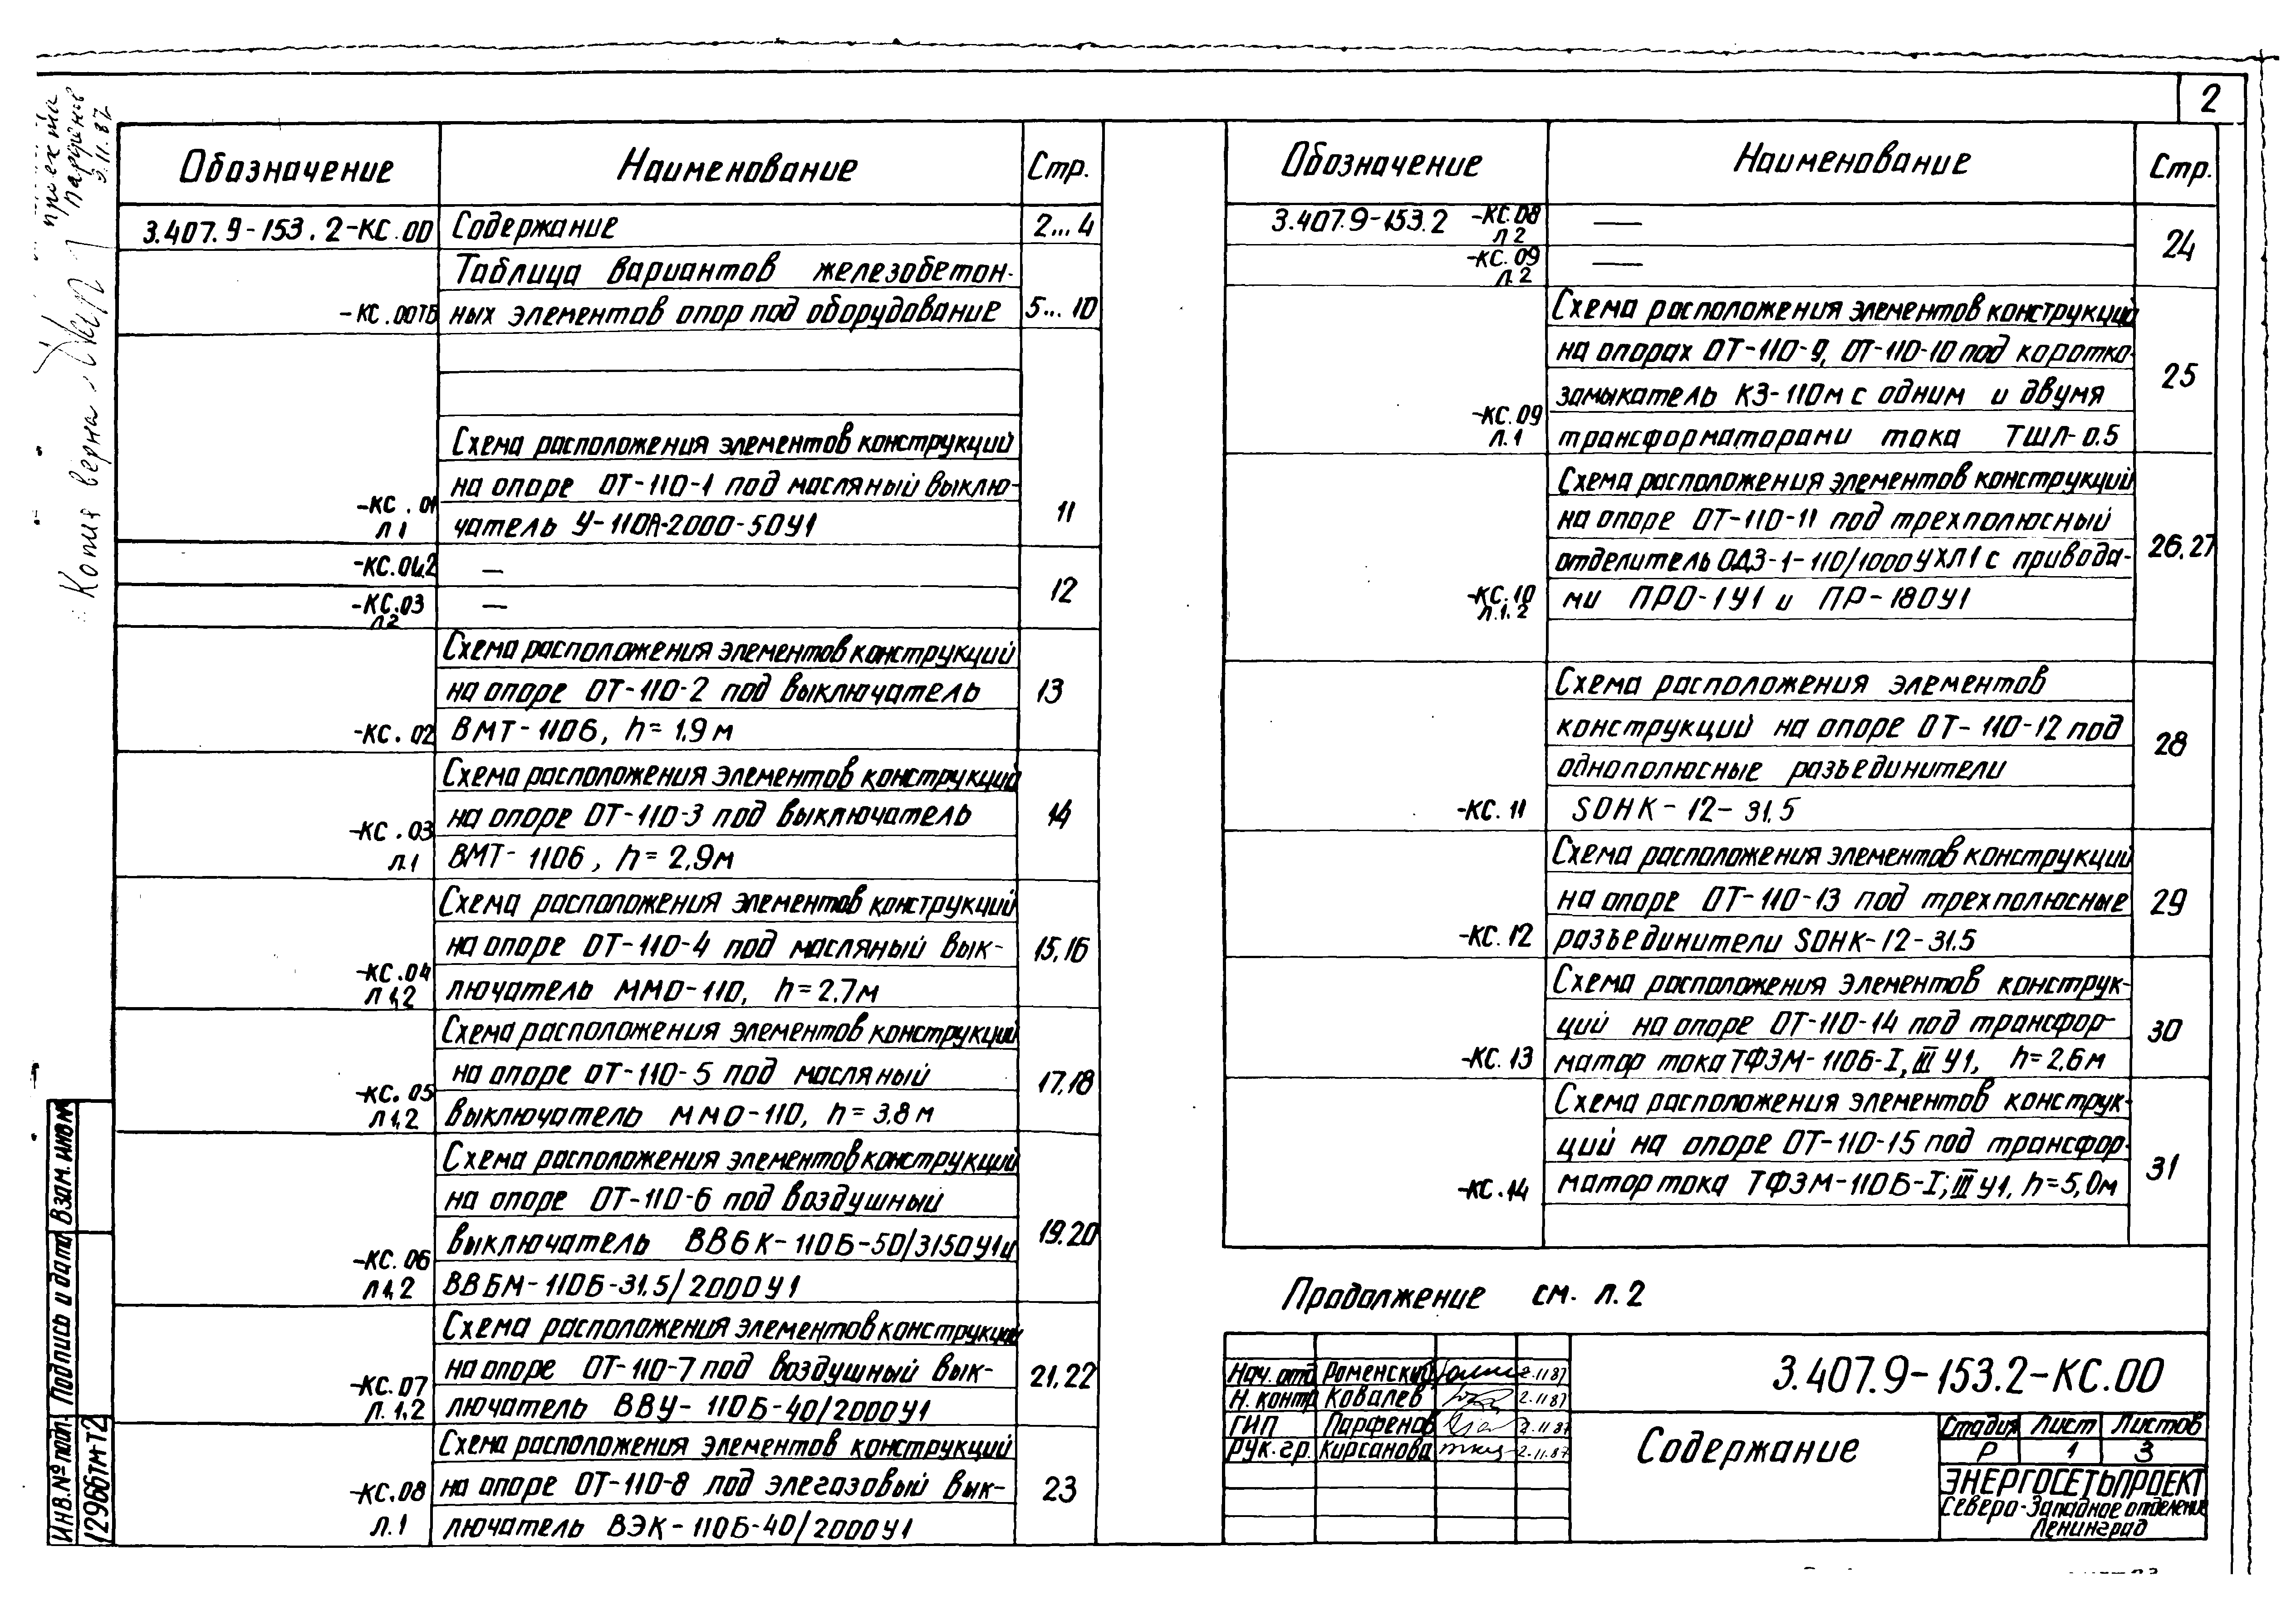 2
Обозначение
Наименование
Стр.
3.407.9-153.2-КС.00
Содержание
2...4
Таблица вариантов железобетон-
-КС.00ТБ
ных элементов опор под оборудование
5...10
Схема расположения элементов конструкций
на опоре ОТ-110-1 под масляный выклю-
-КС.01
л 1
чатель У-110А-2000-50У1
11
-КС.01.2
—
-КС.03
л2
—
12
Схема расположения элементов конструкций
на опоре ОТ-110-2 под выключатель
13
-КС.02
ВМТ-110б, h=1.9м
Схема расположения элементов конструкций
на опоре ОТ-110-3 под выключатель
14
-КС.03
л.1
ВМТ-110б, h=2,9м
Схема расположения элементов конструкций
на опоре ОТ-110-4 под масляный вык-
15,16
-КС.04
л 1,2
лючатель ММО-110, h=2.7м
Схема расположения элементов конструкций
на опоре ОТ-110-5 под масляный
17,18
-КС.05
л 1,2
выключатель ММО-110, h=3.8м
Схема расположения элементов конструкций
на опоре ОТ-110-6 под воздушный
выключатель ВВБК-110Б-50/3150У1и
19.20
-КС.06
л 1,2
ВВБМ-110Б-31,5/2000У1
Схема расположения элементов конструкций
на опоре ОТ-110-7 под воздушный вык-
21,22
-КС.07
л.1,2
лючатель ВВУ-110Б-40/2000У1
Схема расположения элементов конструкций
-КС.08
на опоре ОТ-110-8 под элегазовый вык-
23
л.1
лючатель ВЭК-110Б-40/2000У1
Обозначение
Наименование
Стр.
3.407.9-153.2
-КС.08
л 2
—
-КС.09
л.2
—
24
Схема расположения элементов конструкций
на опорах ОТ-110-9, ОТ-110-10 под коротко-
25
замыкатель КЗ-110м с одним и двумя
-КС.09
л.1
трансформаторами тока ТШЛ-0.5
Схема расположения элементов конструкций
на опоре ОТ-110-11 под трехполюсный
отделитель ОДЗ-1-110/1000УХЛ1 с привода-
26,27
-КС.10
л.1.2
ми ПРО-1У1 и ПР-180У1
Схема расположения элементов
конструкций на опоре ОТ-110-12 под
28
однополюсные разъединители
-КС.11
SOHK-12-31,5
Схема расположения элементов конструкций
на опоре ОТ-110-13 под трехполюсные
29
-КС.12
разъединители SOHK-12-31.5
Схема расположения элементов конструк-
ций на опоре ОТ-110-14 под трансфор-
30
-КС.13
матор тока ТФЗМ-110Б-I,III У1, h=2,6м
Схема расположения элементов конструк-
ций на опоре ОТ-110-15 под трансфор-
31
-КС.14
матор тока ТФЗМ-110Б-I;III У1, h=5,0м
Продолжение см. л.2
Нач. отд Роменский 2.11.87
Н. контр Ковалев 2.11.87
ГИП Парфенов 2.11.87
Рук.гр. Кирсанова 2.11.87
3.407.9-153.2-КС.00
Содержание
Стадия Лист Листов
Р 1 3
ЭНЕРГОСЕТЬПРОЕКТ
Северо-Западное отделение
Ленинград
Копия верна
проекта
Парфенов
11.87
Взам. инв №
Подпись и дата
Инв. № подл.
12966тм-т2